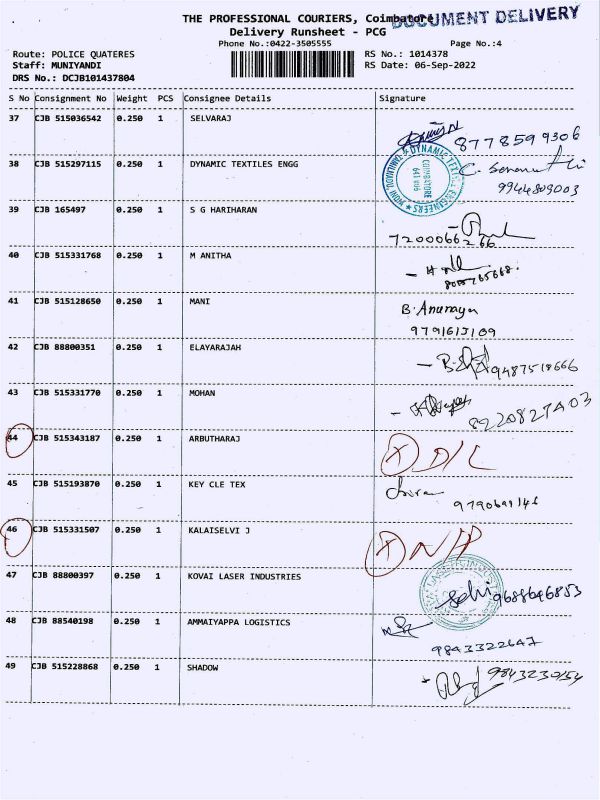 THE PROFESSIONAL COURIERS, Coimbatore
DOCUMENT DELIVERY
Delivery Runsheet - PCG
Phone No.:0422-3505555
Page No.:4
Route: POLICE QUATERES
RS No.: 1014378
Staff: MUNIYANDI
RS Date: 06-Sep-2022
DRS No.: DCJB101437804
S No Consignment No Weight PCS Consignee Details Signature
37 CJB 515036542 0.250 1 SELVARAJ
8778599306
38 CJB 515297115 0.250 1 DYNAMIC TEXTILES ENGG
9944809003
39 CJB 165497 0.250 1 S G HARIHARAN
7200066266
40 CJB 515331768 0.250 1 M ANITHA
41 CJB 515128650 0.250 1 MANI
B. Anuraya
9791613109
42 CJB 88800351 0.250 1 ELAYARAJAH
9487518666
43 CJB 515331770 0.250 1 MOHAN
8220827403
44 CJB 515343187 0.250 1 ARBUTHARAJ
X D/L
45 CJB 515193870 0.250 1 KEY CLE TEX
46 CJB 515331507 0.250 1 KALAISELVI J
X N/P
47 CJB 88800397 0.250 1 KOVAI LASER INDUSTRIES
9688646853
48 CJB 88540198 0.250 1 AMMAIYAPPA LOGISTICS
9843322647
49 CJB 515228868 0.250 1 SHADOW
9843230154